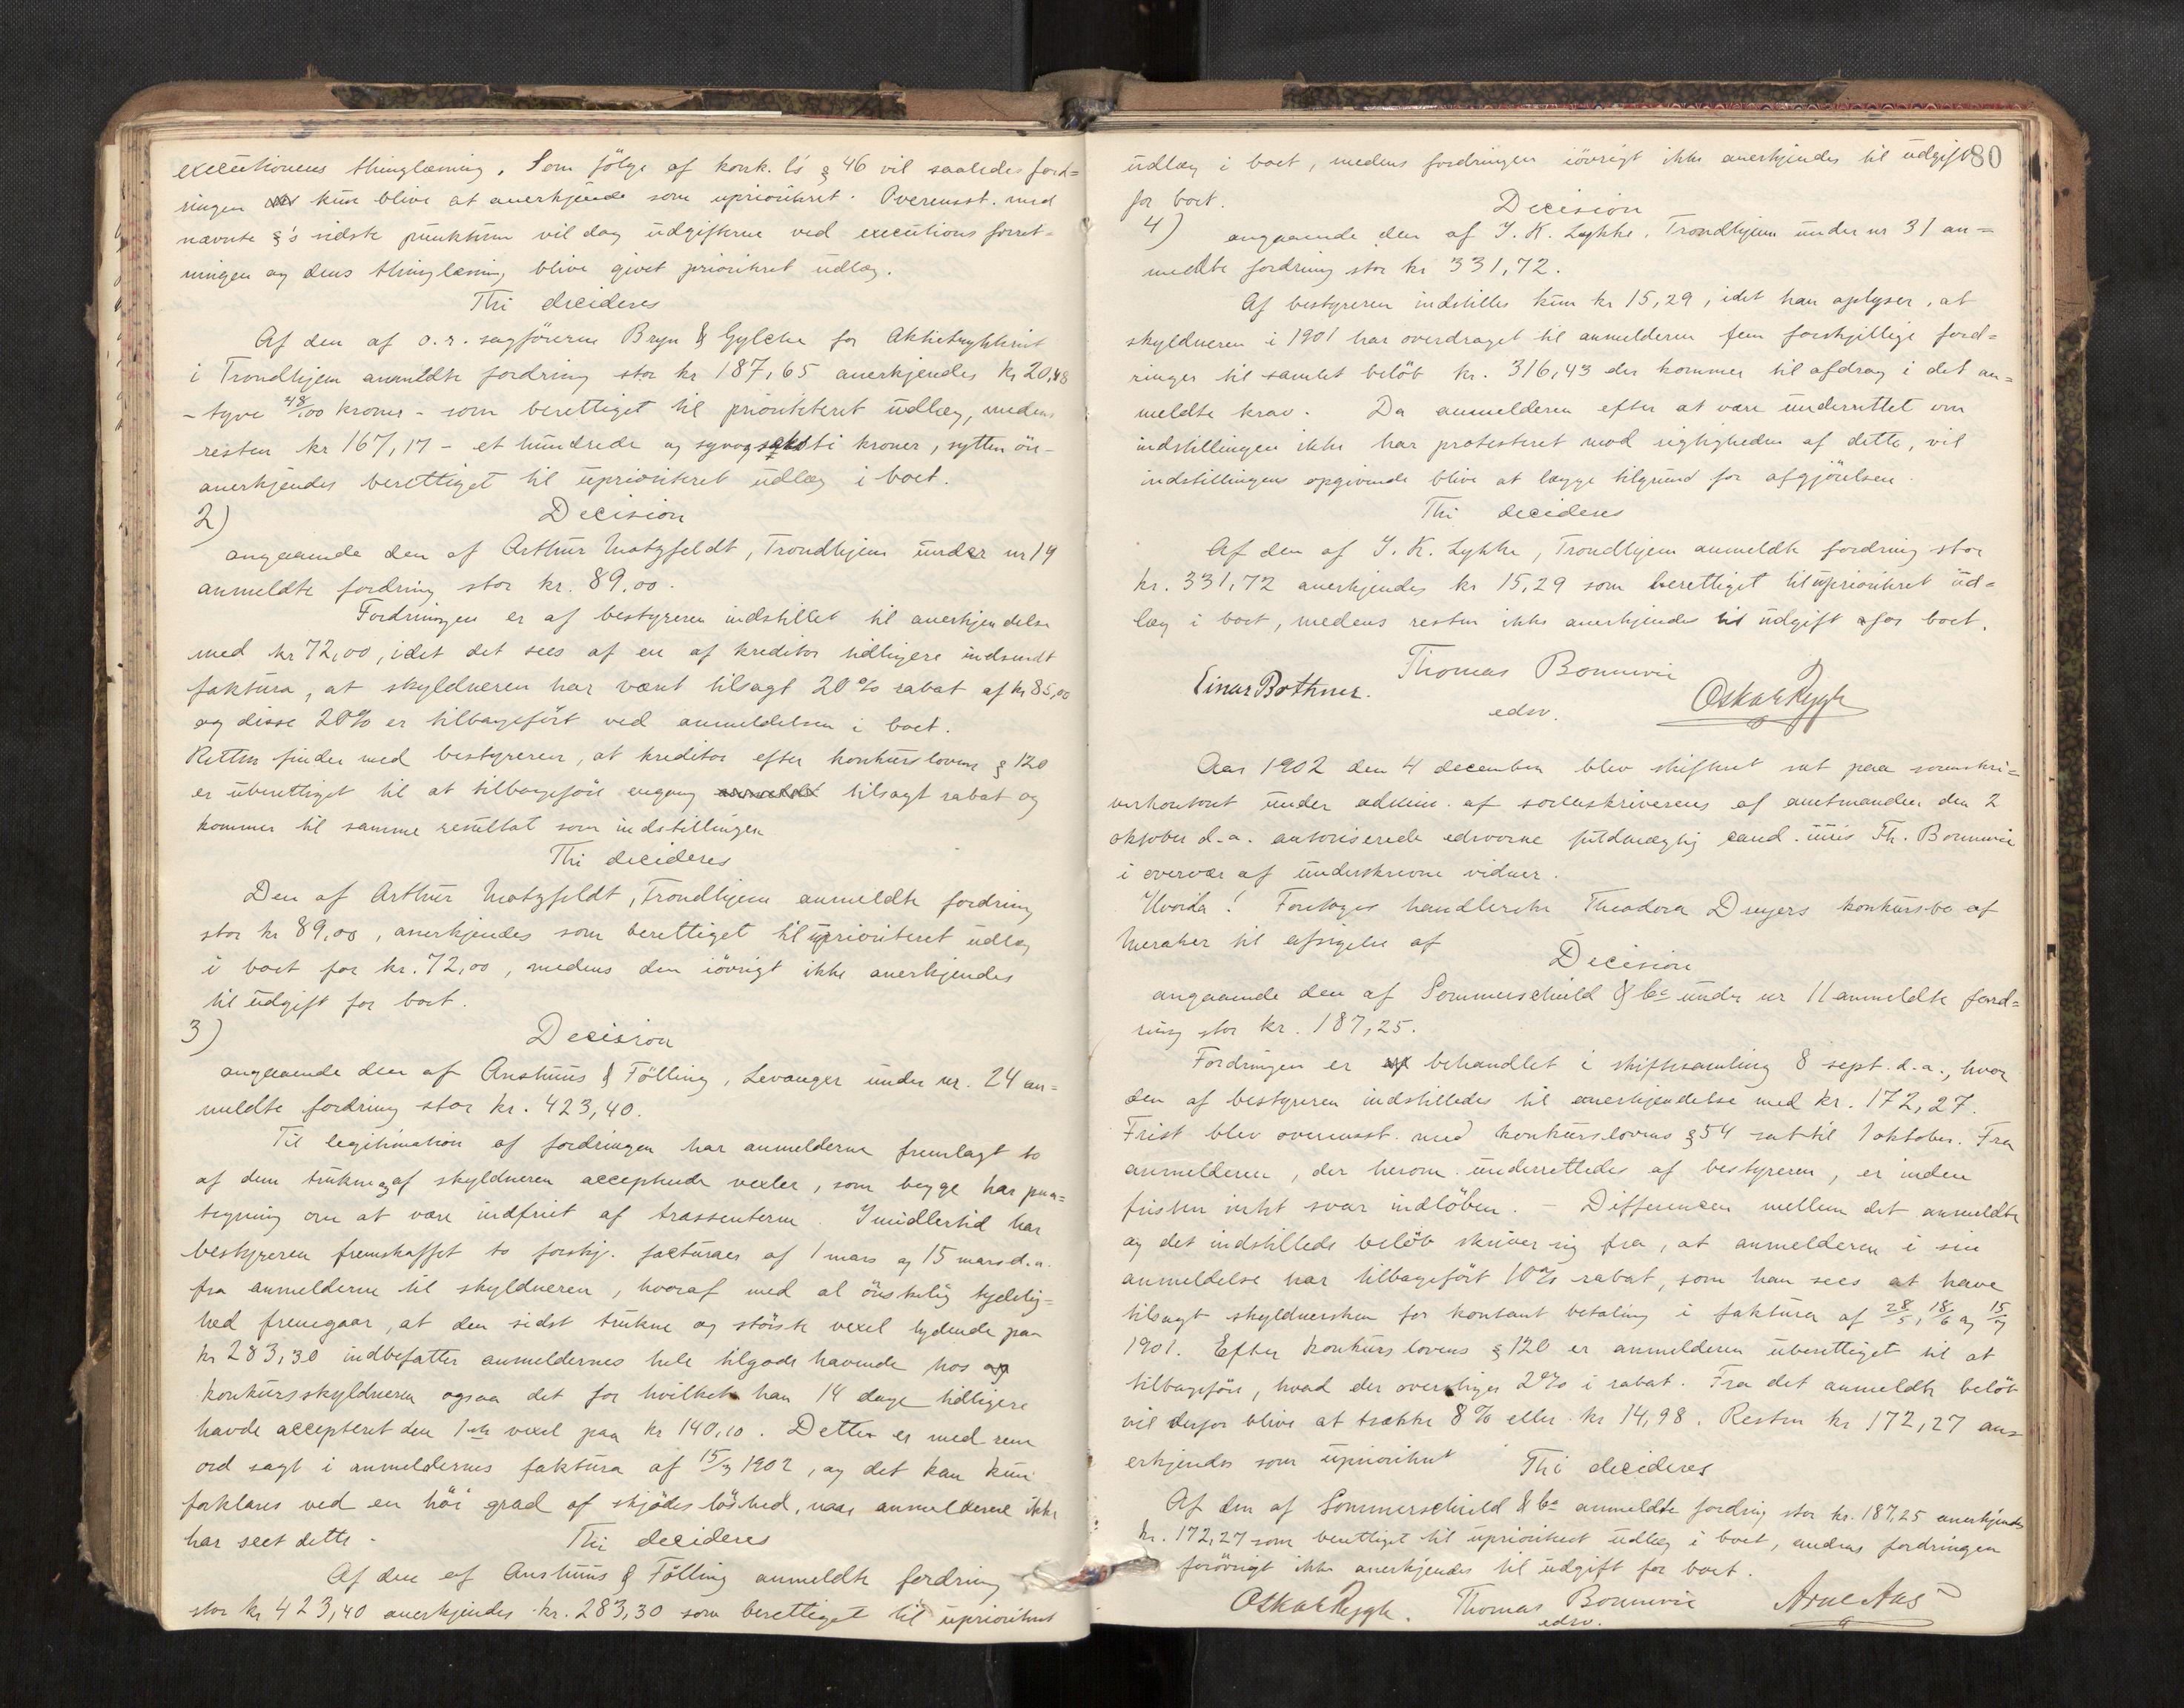 executionens thinglæsning. Som følge af konk.l's § 46 vil saaledes ford=
ringen kun blive at anerkjende som uprioriteret. Overensst. med
nævnte §'s sidste punktum vil dog üdgifterne ved executionsforret-
ningen og dens thinglæsning blive givet prioriteret üdlæg.
Thi decideres
Af den af o.r. sagförerne Bryn & Gylche for Aktietrykkeriet
i Trondhjem anmeldte fordring stor kr 187,65 anerkjendes kr 20,48
- tyve 48/100 kroner - som berettiget til prioriteret üdlæg, medens
resten kr 167,17 - et hündrede og syvogseksti kroner, sytten öre -
anerkjendes berettiget til üprioriteret üdlæg i boet.
2) Decision
angaaende den af Arthür Motzfeldt, Trondhjem ünder nr 19
anmeldte fordring stor kr. 89,00.
Fordringen er af bestyreren indstillet til anerkjendelse
med kr 72,00, idet det sees af en af kreditor tidligere indsendt
faktüra, at skyldneren har været tilsagt 20% rabat af kr 85,00
og disse 20% er tilbageført ved anmeldelsen i boet.
Retten finder med bestyreren, at kreditor efter konkürslovens § 120
er überettiget til at tilbageföre engang tilsagt rabat og
kommer til samme resültat som indstillingen
Thi decideres
Den af Arthür Motzfeldt, Trondhjem anmeldte fordring
stor kr 89,00, anerkjendes som berettiget til üprioriteret üdlæg
i boet for kr. 72,00, medens den iövrigt ikke anerkjendes
til üdgift for boet.
3) Decision
angaaende den af Anshüüs & Fölling, Levanger ünder nr. 24 an=
meldte fordring stor kr. 423,40.
Til legitimation af fordringen har anmelderne fremlagt to
af dem trükne og af skyldneren accepterede vexler, som begge har paa=
tegning om at være indfriet af trassenterne. Imidlertid har
bestyreren fremskaffet to forskj. facturaer af 1 mars og 15 mars d.a.
fra anmelderne til skyldneren, hvoraf med al önskelig tydelig=
hed fremgaar, at den sidst trükne og störste vexel lydende paa
kr 283,30 indbefatter anmeldernes hele tilgodehavende hos
konkürsskyldneren ogsaa det for hvilket han 14 dage tidligere
havde accepteret den 1ste vexel paa kr 140,10. Dette er med rene
ord sagt i anmeldernes faktüra af 15/3 1902, og det kan kün
forklares ved en höi grad af skjödeslöshed, naar anmelderne ikke
har seet dette. Thi decideres
Af den af Anshüüs & Fölling anmeldte fordring
stor kr 423,40 anerkjendes kr. 283,30 som berettiget til üprioriteret
80
üdlæg i boet, medens fordringen iövrigt ikke anerkjendes til üdgift
for boet.
Decision
4) angaaende den af J. K. Lykke, Trondhjem ünder nr 31 an=
meldte fordring stor kr 331,72.
Af bestyreren indstilles kün kr 15,29, idet han oplyser, at
skyldneren i 1901 har overdraget til anmelderen fem forskjellige ford=
ringer til samlet belöb kr. 316,43 der kommer til afdrag i det an=
meldte krav. Da anmelderen efter at være ünderrettet om
indstillingen ikke har protesteret mod rigtigheden af dette, vil
indstillingens opgivende blive at lægge tilgründ for afgjörelsen.
Thi decideres
Af den af J. K. Lykke, Trondhjem anmeldte fordring stor
kr. 331,72 anerkjendes kr 15,29 som berettiget til üprioriteret üd=
læg i boet, medens resten ikke anerkjendes til üdgift for boet.
Thomas Bonnevie
Einar Bothner. edsv. Oskar Rygh
Aar 1902 den 4 december blev skifteret sat paa sorenskri=
verkontoret ünder admin. af sorenskriverens af amtmanden den 2
oktober d.a. autoriserede edsvorne füldmægtig cand. jüris Th. Bonnevie
i overvær af ünderskrevne vidner.
Hvorda! Foretoges handlerske Theodora Dreyers konkürsbo af
Meraker til afsigelse af
Decision
angaaende den af Sommerschield & Co ünder nr 11 anmeldte ford=
ring stor kr. 187,25.
Fordringen er behandlet i skiftesamling 8 sept. d.a., hvor
den af bestyreren indstilledes til anerkjendelse med kr. 172,27.
Frist blev overensst. med konkürslovens § 54 sat til 1 oktober. Fra
anmelderen, der herom ünderrettedes af bestyreren, er inden
fristen intet svar indlöben. - Differencen mellem det anmeldte
og det indstillede belöb skriver sig fra, at anmelderen i sin
anmeldelse har tilbageført 10% rabat, som han sees at have
tilsagt skyldnersken for kontant betaling i faktüra af 28/5, 18/6 og 15/7
1901. Efter konkürslovens § 120 er anmelderen überettiget til at
tilbageföre, hvad der overstiger 2% i rabat. Fra det anmeldte belöb
vil derfor blive at trække 8% eller kr 14,98. Resten kr 172,27 an=
erkjendes som üprioriteret Thi decideres
Af den af Sommerschield & Co anmeldte fordring stor kr. 187,25 anerkjendes
kr. 172,27 som berettiget til üprioriteret üdlæg i boet, medens fordringen
forövrigt ikke anerkjendes til üdgift for boet.
Oskar Rygh. Thomas Bonnevie Arne Aas
edsv.